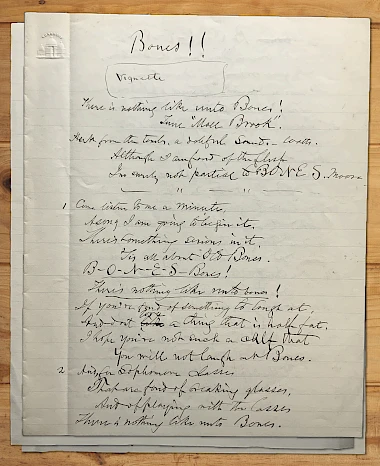 Bones!!
Vignette
There is nothing like unto Bones!
Tune "Moll Brook".
Hark from the tombs, a doleful Sound. Watts.
Although I am fond of the flesh
I'm surely not partial to BONES. Moore
1 Come listen to me a minute,
A song I am going to begin it,
There's something serious in it,
'Tis all about Old Bones.
B-O-N-E-S-Bones!
There's nothing like unto bones!
If you're fond of something to laugh at,
And not a thing that is half fat,
I hope you're not such a calf that
You will not laugh at Bones.
2 Sophomore Lasses
That are fond of breaking glasses,
And of playing with the lasses
There is nothing like unto Bones.